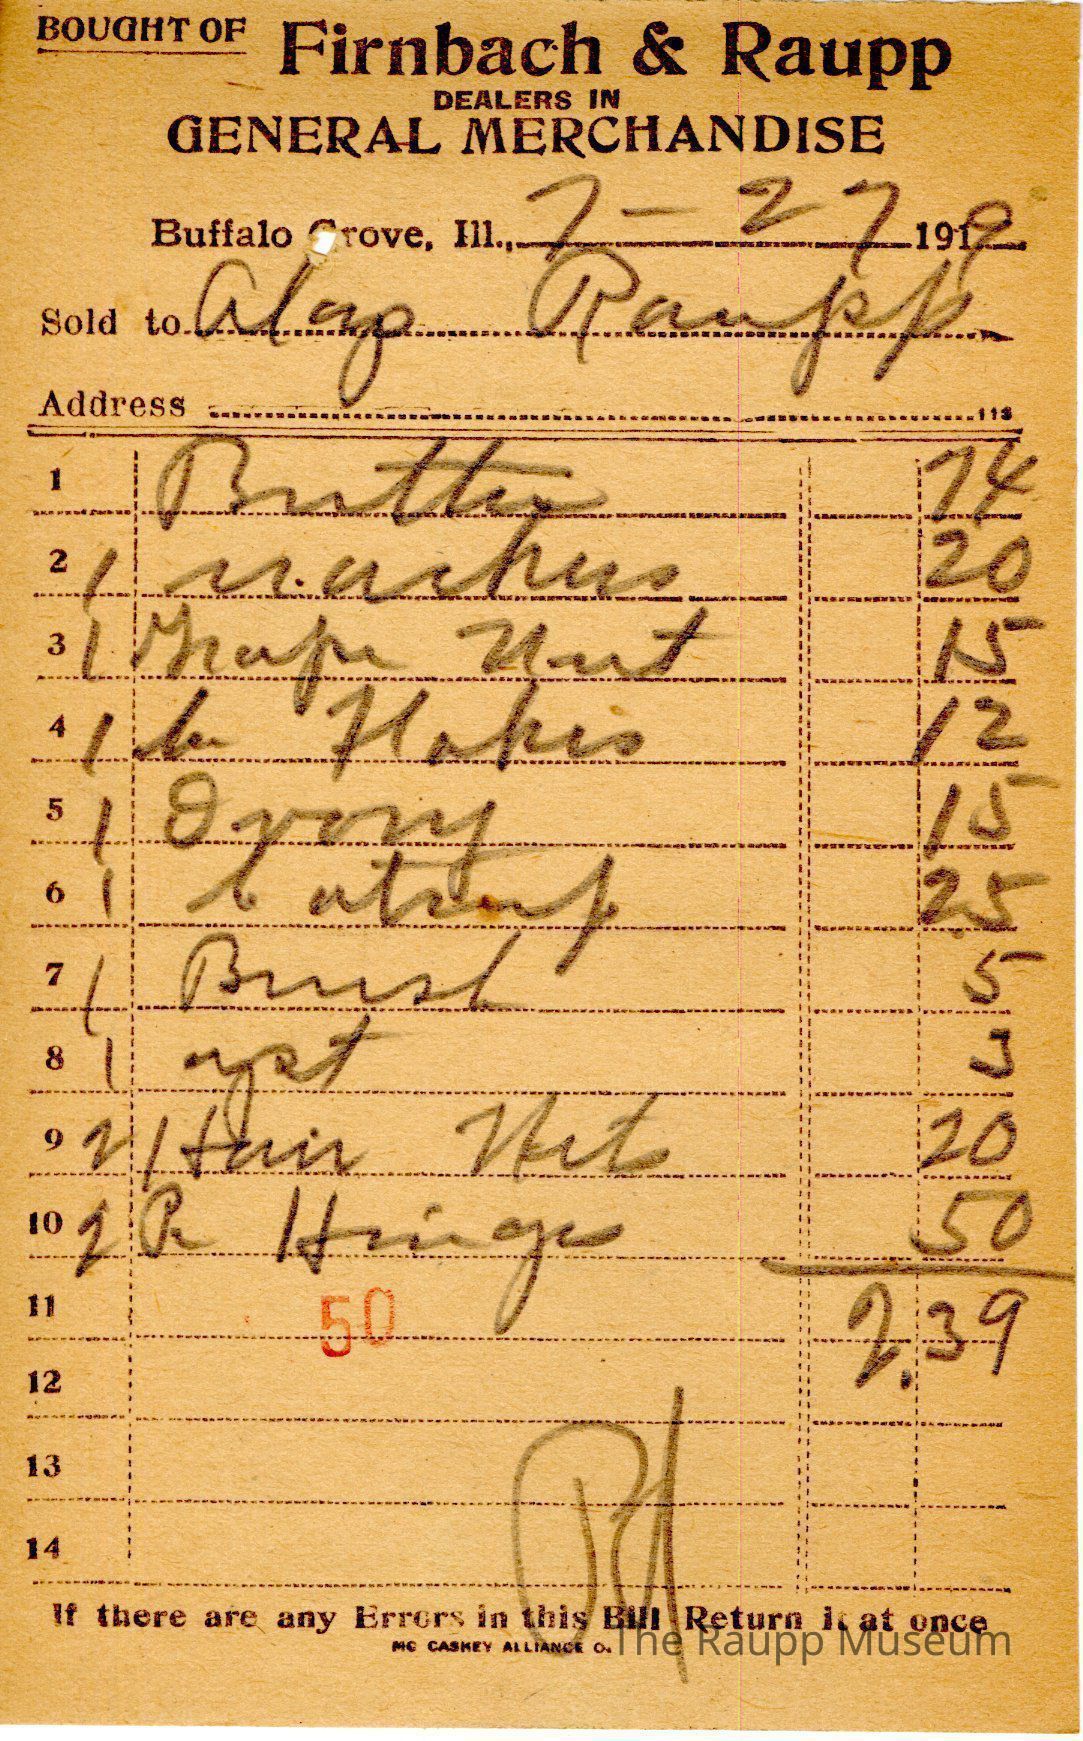 BOUGHT OF Firnbach & Raupp
DEALERS IN
GENERAL MERCHANDISE
Buffalo Grove, Ill., 7-27 1919
Sold to Raupp
Address 113
1 Butter 74
2 1 20
3 1 Grape Nut 15
4 1 Flakes 12
5 1 Ivory 15
6 1 Catsup 25
7 1 Brush 5
8 1 yst 3
9 2 Hair Net 20
10 2 Pr Hinges 50
11 50 2.39
12
13
14
Pd
If there are any Errors in this Bill Return it at once
MC CASKEY ALLIANCE O.
The Raupp Museum